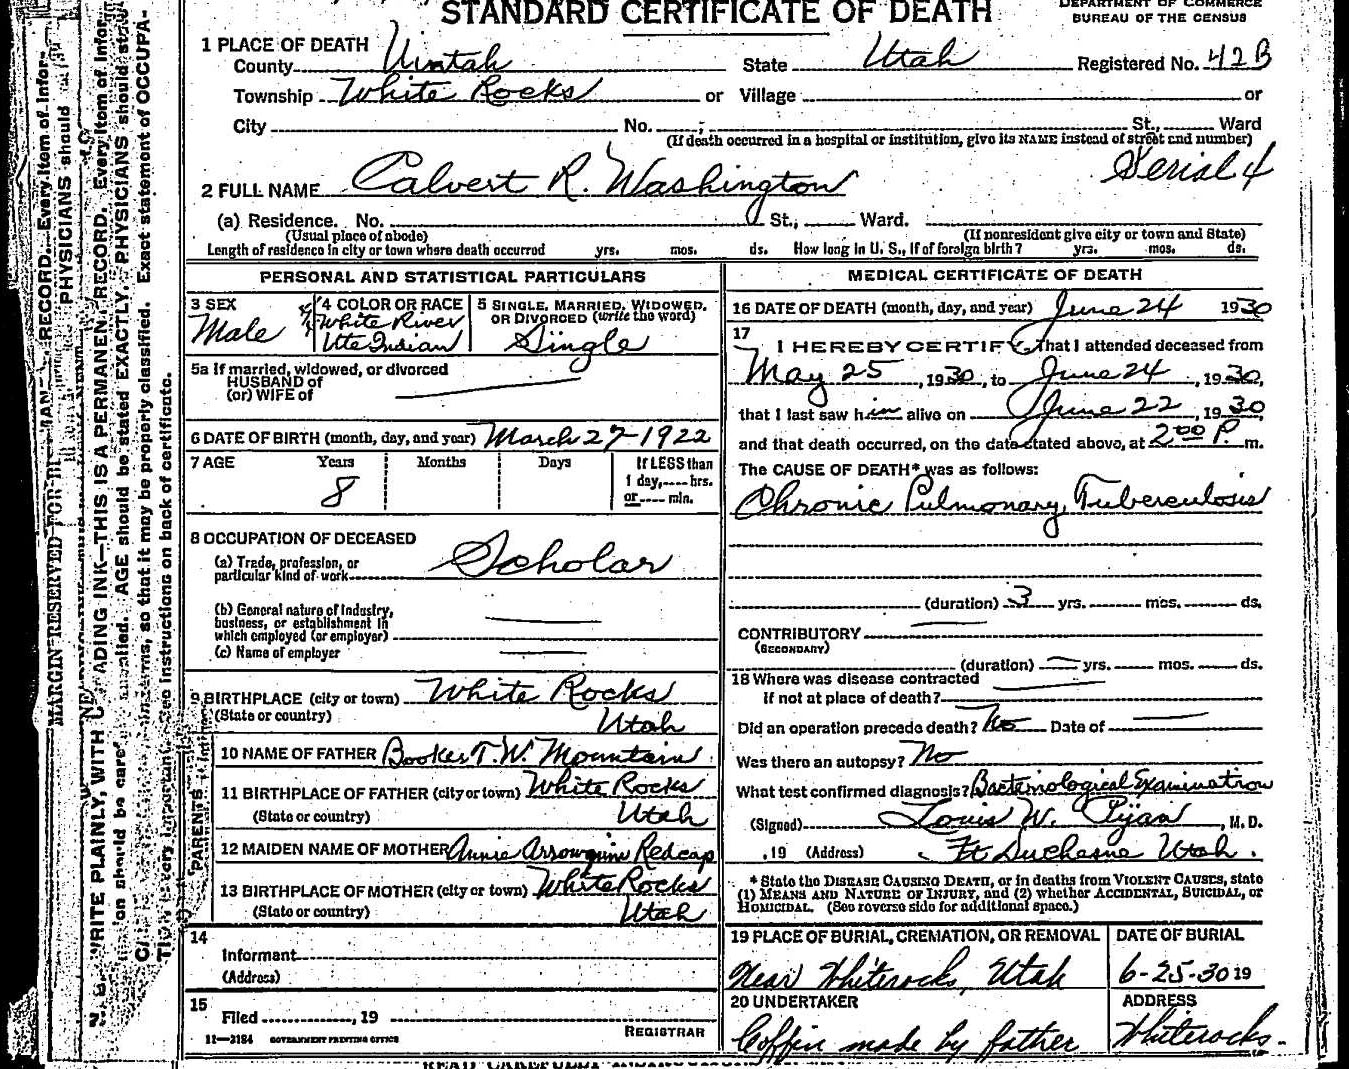 STANDARD CERTIFICATE OF DEATH
DEPARTMENT OF COMMERCE
BUREAU OF THE CENSUS
1 PLACE OF DEATH
County Uintah State Utah Registered No. 42B
Township White Rocks or Village or
City No. St., Ward
(If death occurred in a hospital or institution, give its NAME instead of street and number)
Serial 4
2 FULL NAME Calvert R. Washington
(a) Residence. No. St., Ward.
(Usual place of abode) (If nonresident give city or town and State)
Length of residence in city or town where death occurred yrs. mos. ds. How long in U. S., if of foreign birth? yrs. mos. ds.
PERSONAL AND STATISTICAL PARTICULARS
3 SEX 4 COLOR OR RACE 5 SINGLE, MARRIED, WIDOWED, OR DIVORCED (write the word)
Male 4/4 White River Ute Indian Single
5a If married, widowed, or divorced
HUSBAND of
(or) WIFE of
6 DATE OF BIRTH (month, day, and year) March 27-1922
7 AGE Years Months Days If LESS than
1 day, hrs.
or min.
8
8 OCCUPATION OF DECEASED
(a) Trade, profession, or
particular kind of work Scholar
(b) General nature of industry,
business, or establishment in
which employed (or employer)
(c) Name of employer
9 BIRTHPLACE (city or town) White Rocks
(State or country) Utah
PARENTS
10 NAME OF FATHER Booker T. W. Mountain
11 BIRTHPLACE OF FATHER (city or town) White Rocks
(State or country) Utah
12 MAIDEN NAME OF MOTHER Annie Redcap
13 BIRTHPLACE OF MOTHER (city or town) White Rocks
(State or country) Utah
14
Informant
(Address)
15
Filed , 19
REGISTRAR
11—3184 GOVERNMENT PRINTING OFFICE
MEDICAL CERTIFICATE OF DEATH
16 DATE OF DEATH (month, day, and year) June 24 1930
17
I HEREBY CERTIFY, That I attended deceased from
May 25, 1930, to June 24, 1930,
that I last saw him alive on June 22, 1930,
and that death occurred, on the date stated above, at 2:00 P. m.
The CAUSE OF DEATH* was as follows:
Chronic Pulmonary Tuberculosis
(duration) 3 yrs. mos. ds.
CONTRIBUTORY
(SECONDARY)
(duration) yrs. mos. ds.
18 Where was disease contracted
if not at place of death?
Did an operation precede death? No Date of
Was there an autopsy? No
What test confirmed diagnosis? Bacteriological Examination
(Signed) Louis W. , M. D.
, 19 (Address) Ft Duchesne Utah.
* State the DISEASE CAUSING DEATH, or in deaths from VIOLENT CAUSES, state
(1) MEANS AND NATURE OF INJURY, and (2) whether ACCIDENTAL, SUICIDAL, or
HOMICIDAL. (See reverse side for additional space.)
19 PLACE OF BURIAL, CREMATION, OR REMOVAL DATE OF BURIAL
Near Whiterocks, Utah 6-25-30 19
20 UNDERTAKER ADDRESS
Coffin made by father Whiterocks.
MARGIN RESERVED FOR
WRITE PLAINLY, WITH FADING INK—THIS IS A PERMANENT RECORD. Every item of infor-
should be AGE should be stated EXACTLY. PHYSICIANS should
so that it may be properly classified. Exact statement of OCCUPA-
See instructions on back of certificate.